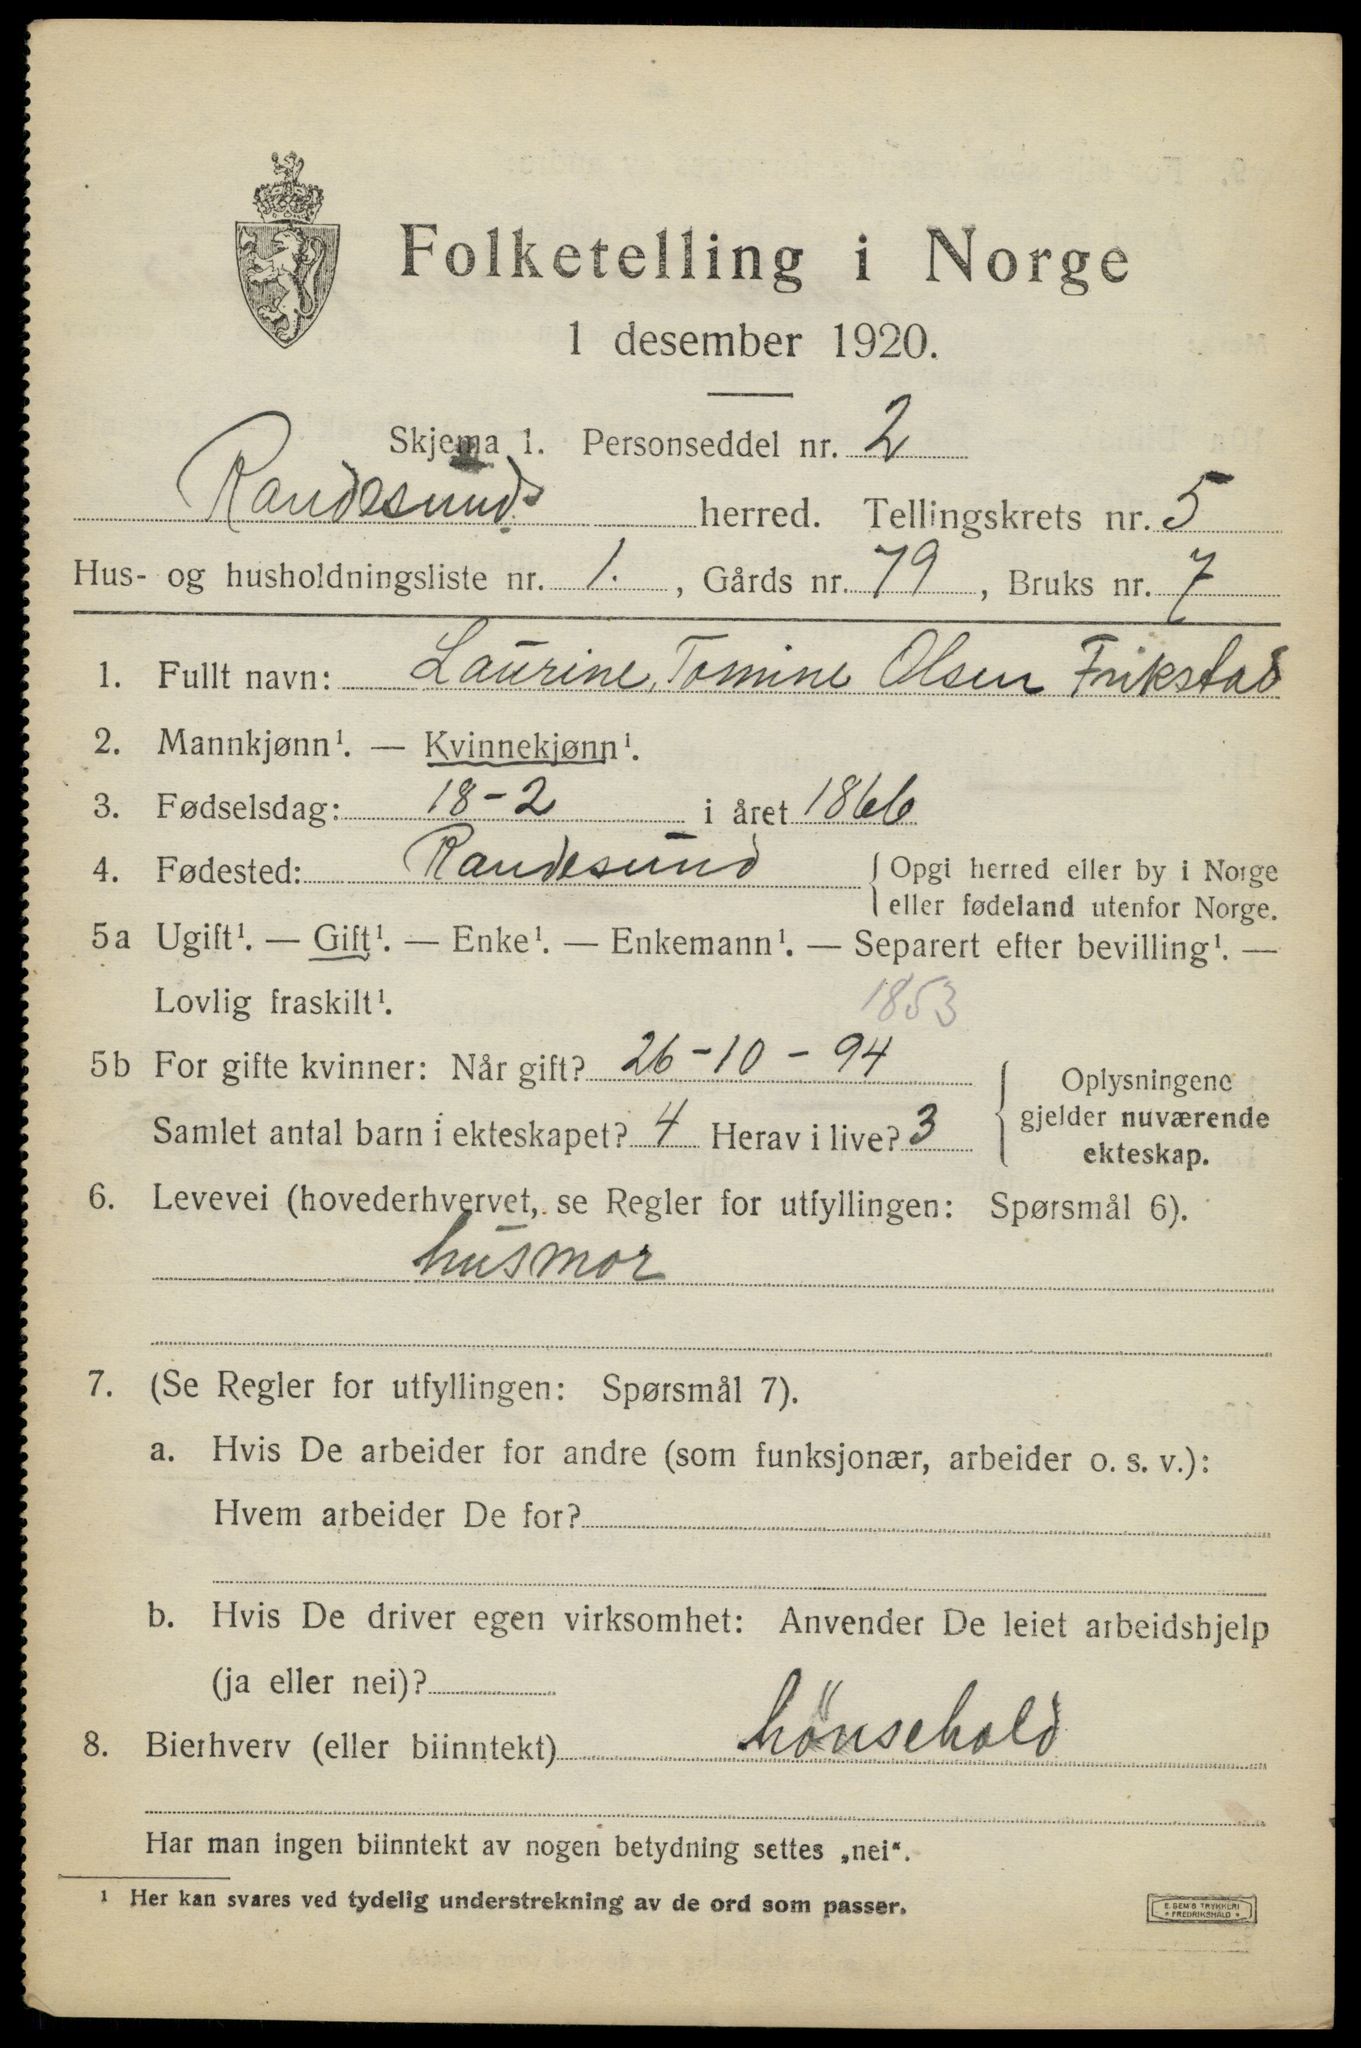 Folketelling i Norge
1 desember 1920.
Skjema 1. Personseddel nr. 2
Randesunds herred. Tellingskrets nr. 5
Hus- og husholdningsliste nr. 1. , Gårds nr. 79 , Bruks nr. 7
1. Fullt navn: Laurine, Tomine Olsen Frikstad
2. Mannkjønn¹. — Kvinnekjønn¹.
3. Fødselsdag: 18-2 i året 1866
4. Fødested: Randesund { Opgi herred eller by i Norge
eller fødeland utenfor Norge.
5a Ugift¹. — Gift¹. — Enke¹. — Enkemann¹. — Separert efter bevilling¹. —
Lovlig fraskilt¹. 1853
5b For gifte kvinner: Når gift? 26-10-94
Samlet antal barn i ekteskapet? 4 Herav i live? 3
{ Oplysningene
gjelder nuværende
ekteskap.
6. Levevei (hovederhvervet, se Regler for utfyllingen: Spørsmål 6).
husmor
7. (Se Regler for utfyllingen: Spørsmål 7).
a. Hvis De arbeider for andre (som funksjonær, arbeider o. s. v.):
Hvem arbeider De for?
b. Hvis De driver egen virksomhet: Anvender De leiet arbeidshjelp
(ja eller nei)?
8. Bierhverv (eller biinntekt) hönsehold
Har man ingen biinntekt av nogen betydning settes „nei“.
¹ Her kan svares ved tydelig understrekning av de ord som passer.
E. SEM'S TRYKKERI
FREDRIKSHALD